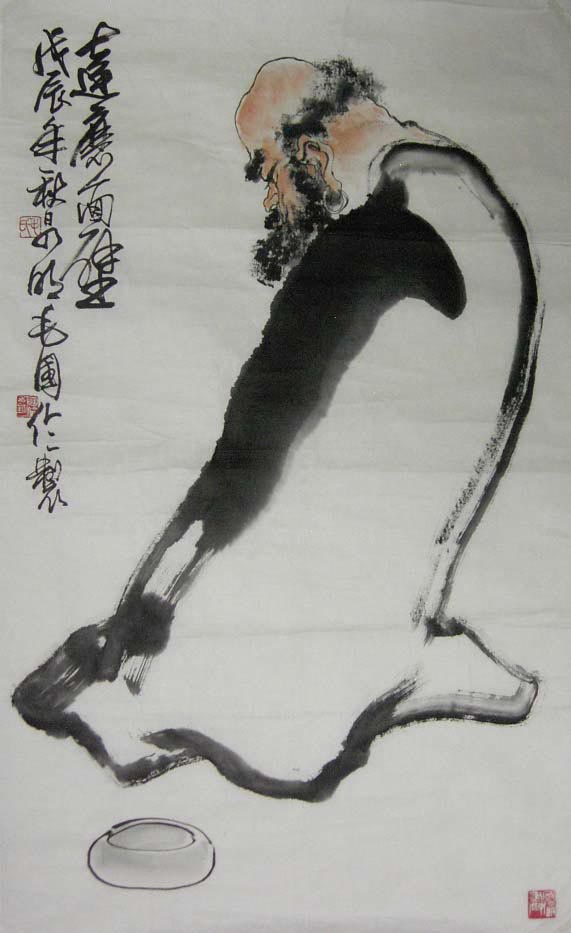 達摩面壁
戊辰年秋昆明毛國倫製